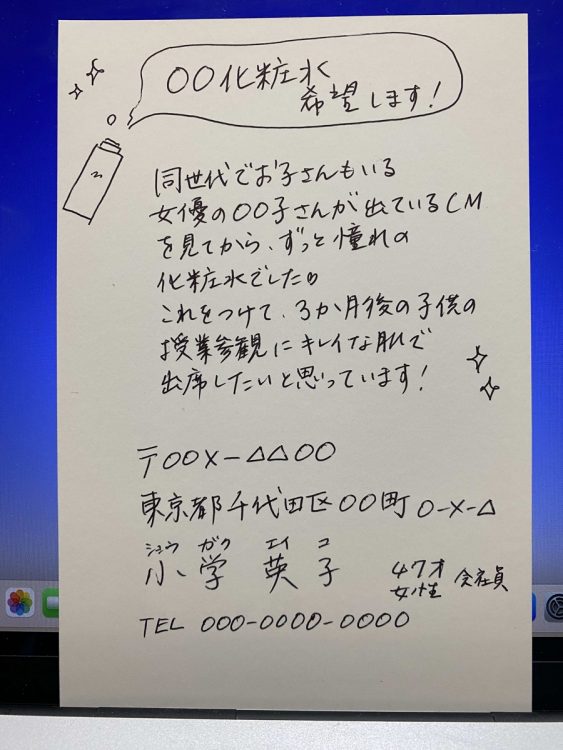 〇〇化粧水
希望します!
同世代でお子さんもいる
女優の〇〇子さんが出ているCM
を見てから、ずっと憧れの
化粧水でした♡
これをつけて、3か月後の子供の
授業参観にキレイな肌で
出席したいと思っています!
〒〇〇×-△△〇〇
東京都千代田区〇〇町 〇-×-△
ショウ ガク エイ コ
小学 英子
47才 会社員
女性
TEL 〇〇〇-〇〇〇〇-〇〇〇〇